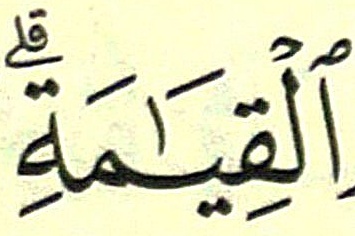 ٱلۡقِيَٰمَةِۗ